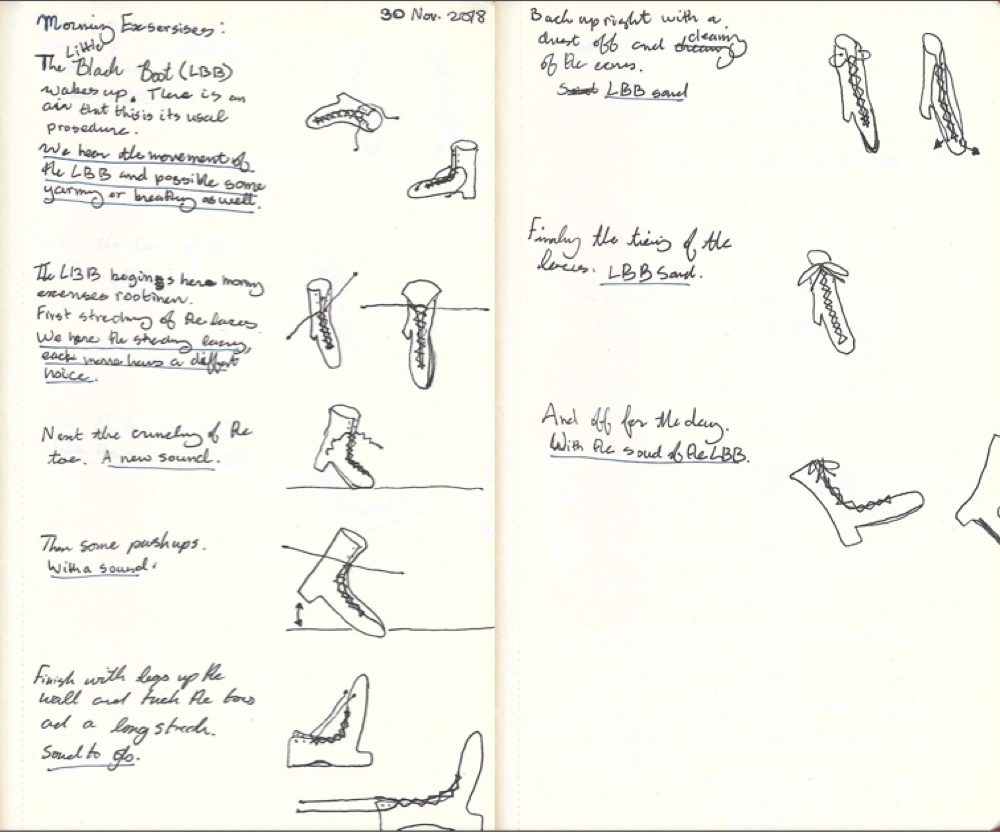 30 Nov. 2018
Morning Exsersises:
Little
The Black Boot (LBB)
wakes up. There is an
air that this is its usual
prosedure.
We hear the movement of
the LBB and possible some
yarning or breathing as well.
The LBB begings here morny
exerises rootinen.
First streching of the laces.
We here the streching laces,
each move haves a diffent
noice.
Next the crunching of the
toe. A new sound.
Then some pushups.
With a sound.
Finish with legs up the
wall and tuck the toes
ad a long strech.
Sound to go.
Back up right with a
dust off and cleaning
of the eares.
LBB sound
Finaly the tieing of the
laces. LBB Sound.
And off for the day.
With the sound of the LBB.